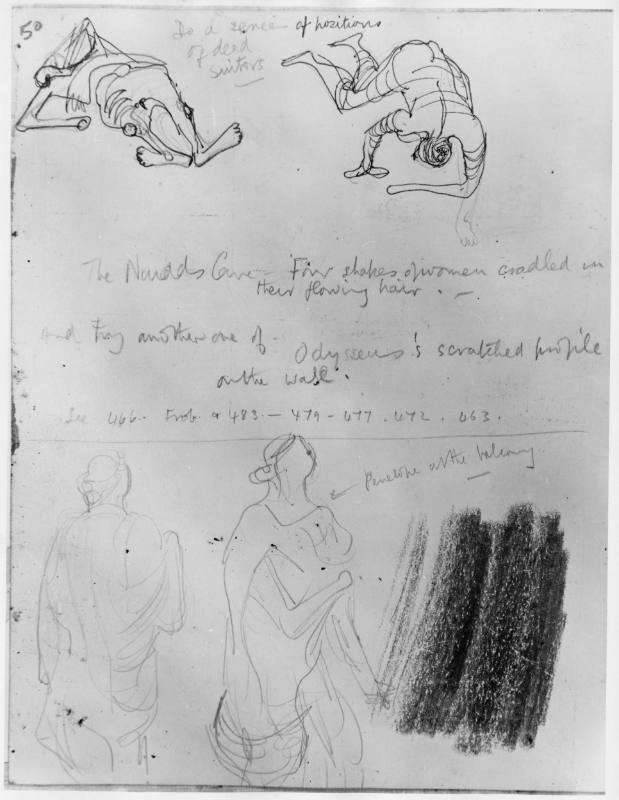 50
Do a series of positions
of dead
suitors
The Naiads Cave - Four shapes of women cradled in
their flowing hair. -
And try another one of Odysseus's scratched profile
on the wall.
See 466. Frob. & 483 - 479 - 477. 472. 463.
Penelope at the balcony